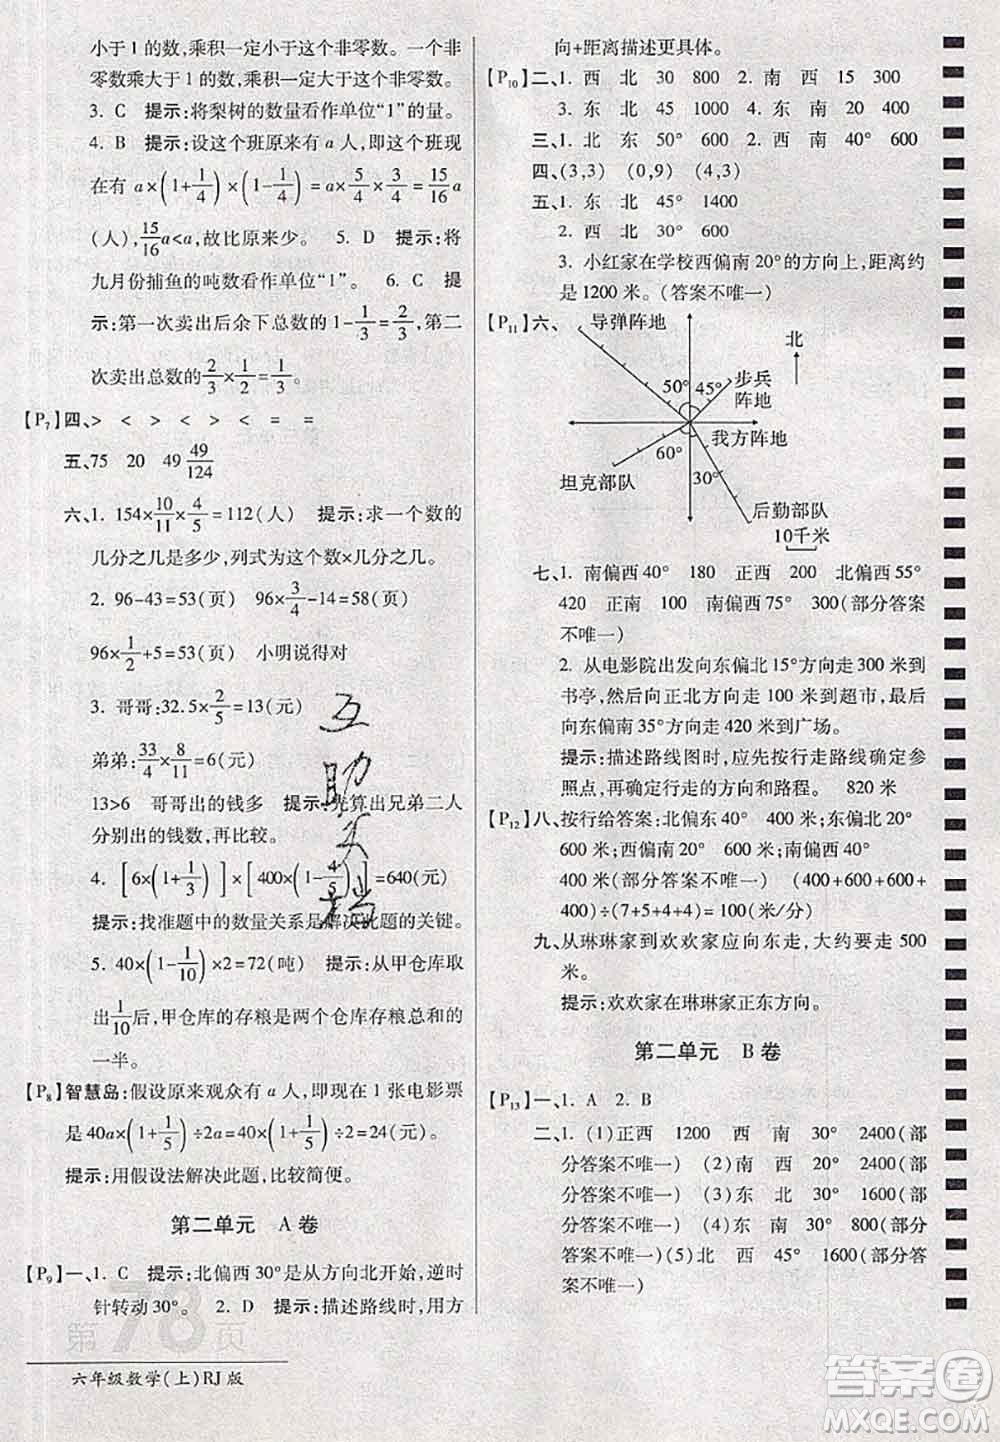 小于1的数,乘积一定小于这个非零数。一个非
零数乘大于1的数,乘积一定大于这个非零数。
3. C 提示:将梨树的数量看作单位“1”的量。
4. B 提示:设这个班原来有a人,则这个班现
在有 a×(1+1/4)×(1-1/4)=a×5/4×3/4=15/16a
(人),15/16a<a,故比原来少。 5. D 提示:将
九月份捕鱼的吨数看作单位“1”。 6. C 提
示:第一次卖出后余下总数的1-1/3=2/3,第二
次卖出总数的2/3×1/2=1/3。
【P7】四、> < > < < < = =
五、75 20 49 49/124
六、1. 154×10/11×4/5=112(人) 提示:求一个数的
几分之几是多少,列式为这个数×几分之几。
2. 96-43=53(页) 96×3/4-14=58(页)
96×1/2+5=53(页) 小明说得对
3. 哥哥:32.5×2/5=13(元)
弟弟:33/4×8/11=6(元)
13>6 哥哥出的钱多 提示:先算出兄弟二人
分别出的钱数,再比较。
4. [6×(1+1/3)]×[400×(1-4/5)]=640(元)
提示:找准题中的数量关系是解决此题的关键。
5. 40×(1-1/10)×2=72(吨) 提示:从甲仓库取
出1/10后,甲仓库的存粮是两个仓库存粮总和的
一半。
【P8】智慧岛:假设原来观众有a人,则现在1张电影票
是40a×(1+1/5)÷2a=40×(1+1/5)÷2=24(元)。
提示:用假设法解决此题,比较简便。
第二单元 A卷
【P9】一、1. C 提示:北偏西30°是从方向北开始,逆时
针转动30°。 2. D 提示:描述路线时,用方
第78页
六年级数学(上)RJ版
向+距离描述更具体。
【P10】二、1. 西 北 30 800 2. 南 西 15 300
3. 东 北 45 1000 4. 东 南 20 400
三、1. 北 东 50° 600 2. 西 南 40° 600
四、(3,3) (0,9) (4,3)
五、1. 东 北 45° 1400
2. 西 北 60° 600
3. 小红家在学校西偏南20°的方向上,距离约
是1200米。(答案不唯一)
【P11】六、
导弹阵地
北
50°
45°
步兵
阵地
我方阵地
60°
坦克部队
30°
后勤部队
10千米
七、1. 南偏西40° 180 正西 200 北偏西55°
420 正南 100 南偏西75° 300(部分答案
不唯一)
2. 从电影院出发向东偏北15°方向走300米到
书亭,然后向正北方向走100米到超市,最后
向东偏南35°方向走420米到广场。
提示:描述路线图时,应先按行走路线确定参
照点,再确定行走的方向和路程。 820米
【P12】八、按行给答案:北偏东40° 400米;东偏南20°
600米;西偏南30° 600米;西偏北20°
400米(部分答案不唯一) (400+600+600+
400)÷(7+5+4+4)=100(米/分)
九、从琳琳家到欢欢家应向东走,大约要走500
米。
提示:欢欢家在琳琳家正东方向。
第二单元 B卷
【P13】一、1. A 2. B
二、1. (1)正西 1200 西 南 30° 2400(部
分答案不唯一) (2)南 西 20° 2400(部
分答案不唯一) (3)东 北 30° 1600(部
分答案不唯一) (4)东 南 30° 800(部分
答案不唯一)(5)北 西 45° 1600(部分答
案不唯一)
互
助
文
档
答案圈
MXQE.COM